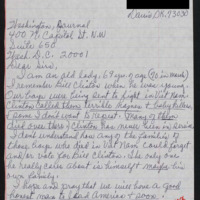 Davis, OK. 73030
Washington Journal
400 N. Capitol St. N.W
Suite 650
Wash D.C. 20001
Dear Sirs,
I am an old lady, 69 yr. of age
I remember Bill Clinton when he was young.
Our boys were being sent to fight in Viet Nam
Clinton called them terrible names + baby killers
+ some I don't want to repeat. Many of them
died over there + Clinton has never been in service
I don't understand how any of the families of
those boys who died in Viet Nam could forget
and/or vote for Bill Clinton. The only one
he really cares about is himself + maybe his
own family.
I hope and pray that we will have a good
honest man to lead America + soon.